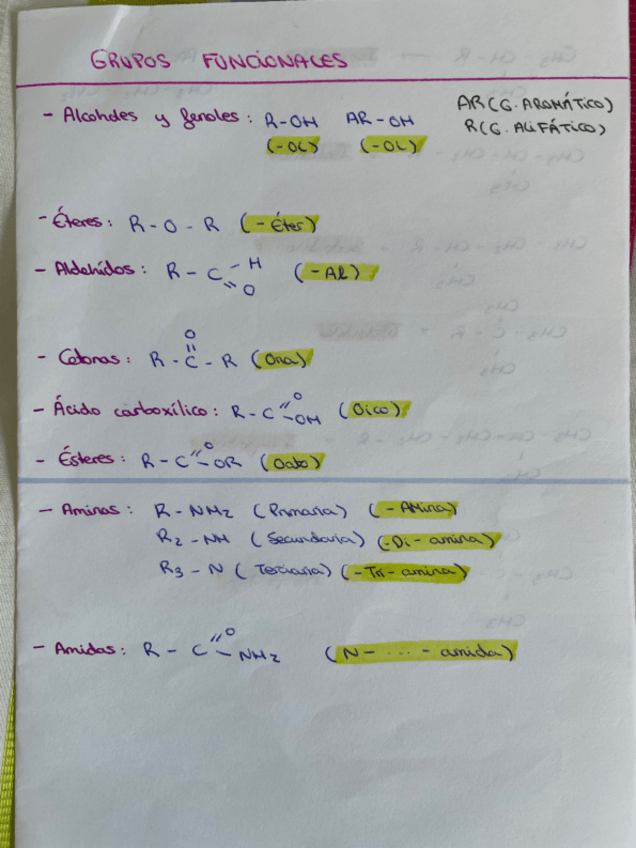 GRUPOS FUNCIONALES
- Alcoholes y fenoles: R-OH AR-OH
(-OL) (-OL)
AR(G. AROMÁTICO)
R(G. ALIFÁTICO)
- Éteres: R-O-R (-Éter)
- Aldehídos: R-C-H (-AL)
=O
- Cetonas: R-C-R (Ona)
O
- Ácido carboxílico: R-C=O-OH (Oico)
- Ésteres: R-C=O-OR (Oato)
- Aminas: R-NH2 (Primaria) (-Amina)
R2-NH (Secundaria) (-Di-amina)
R3-N (Terciaria) (-Tri-amina)
- Amidas: R-C=O-NH2 (N-...-amida)